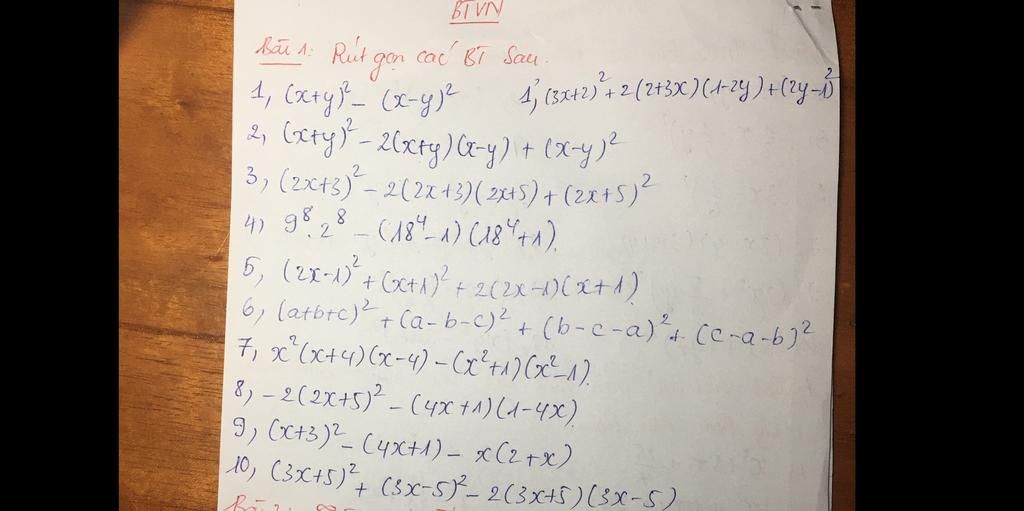 BTVN
Bài 1: Rút gọn các BT Sau.
1, (x+y)² - (x-y)²
1', (3x+2)² + 2(2+3x)(1-2y) + (2y-1)²
2, (x+y)² - 2(x+y)(x-y) + (x-y)²
3, (2x+3)² - 2(2x+3)(2x+5) + (2x+5)²
4) 9⁸. 2⁸ - (18⁴-1)(18⁴+1).
5, (2x-1)² + (x+1)² + 2(2x-1)(x+1)
6, (a+b+c)² + (a-b-c)² + (b-c-a)² + (c-a-b)²
7, x²(x+4)(x-4) - (x²+1)(x²-1).
8, -2(2x+5)² - (4x+1)(1-4x)
9, (x+3)² - (4x+1) - x(2+x)
10, (3x+5)² + (3x-5)² - 2(3x+5)(3x-5)